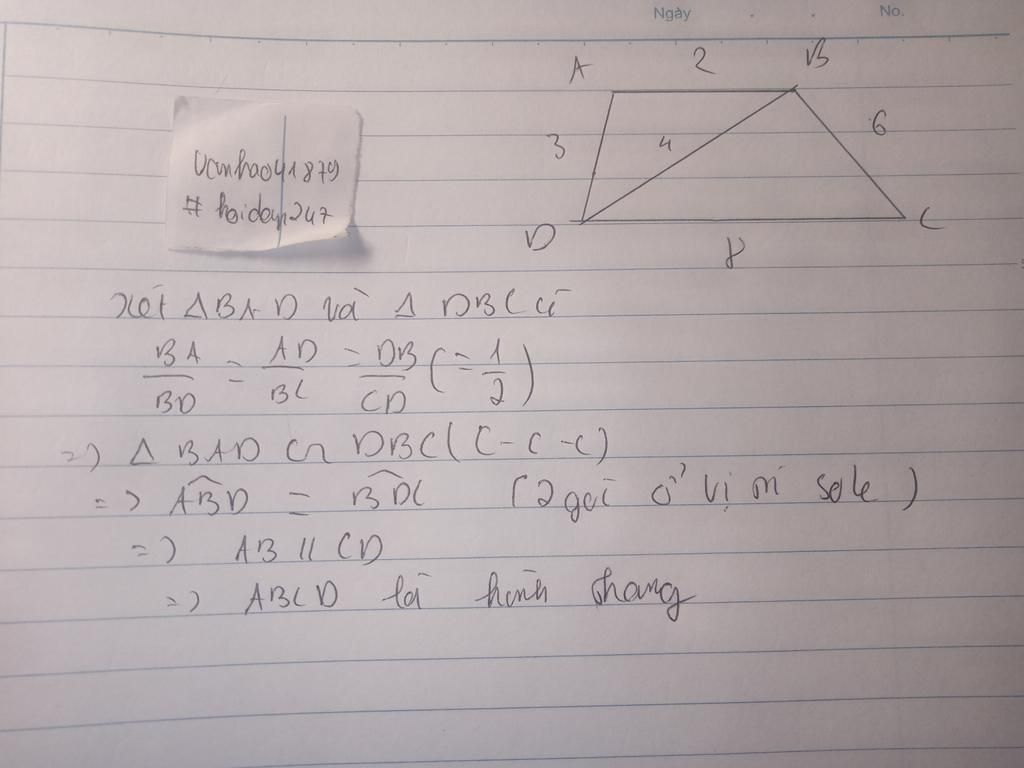 Ngày . . No.
A 2 B
Vanhao41879
# hoidap247
3 4 6
D 8 C
Xét Δ BAD và Δ DBC có
BA/BD = AD/BC = DB/CD (= 1/2)
=) Δ BAD ∽ DBC (C-C-C)
=) ABD = BDC (2 góc ở vị trí sole)
=) AB // CD
=) ABCD là hình thang